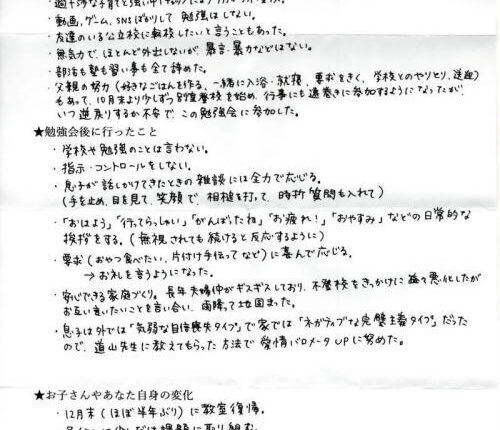 ・動画,ゲーム,SNSばかりして勉強はしない。
・友達のいる公立校に転校したいと言うこともあった。
・無気力で、ほとんど外出しないが、暴言・暴力などはない。
・部活も塾も習い事も全て辞めた。
・父親の努力(好きなごはんを作る、一緒に入浴・就寝、要求をきく、学校とのやりとり、送迎)
もあって、10月末より少しずつ別室登校を始め、行事にも遠巻きに参加するようになったが、
いつ逆戻りするか不安で、この勉強会に参加した。
★勉強会後に行ったこと
・学校や勉強のことは言わない。
・指示・コントロールをしない。
・息子が話しかけてきたときの雑談には全力で応じる。
(手を止め、目を見て、笑顔で、相槌を打って、時折質問も入れて)
・「おはよう」「行ってらっしゃい」「がんばったね」「お疲れ!」「おやすみ」などの日常的な
挨拶をする。(無視されても続けると反応するように)
・要求(おやつ食べたい、片付け手伝ってなど)に喜んで応じる。
→お礼を言うようになった。
・安心できる家庭づくり。長年夫婦仲がギスギスしており、不登校をきっかけに益々悪化したが
お互い言いたいことを言い合い、雨降って地固まった。
・息子は外では「気弱な自信喪失タイプ」で家では「ネガティブな完璧主義タイプ」だった
ので、道山先生に教えてもらった方法で愛情バロメータUPに努めた。
★お子さんやあなた自身の変化
・12月末(ほぼ半年ぶり)に教室復帰。